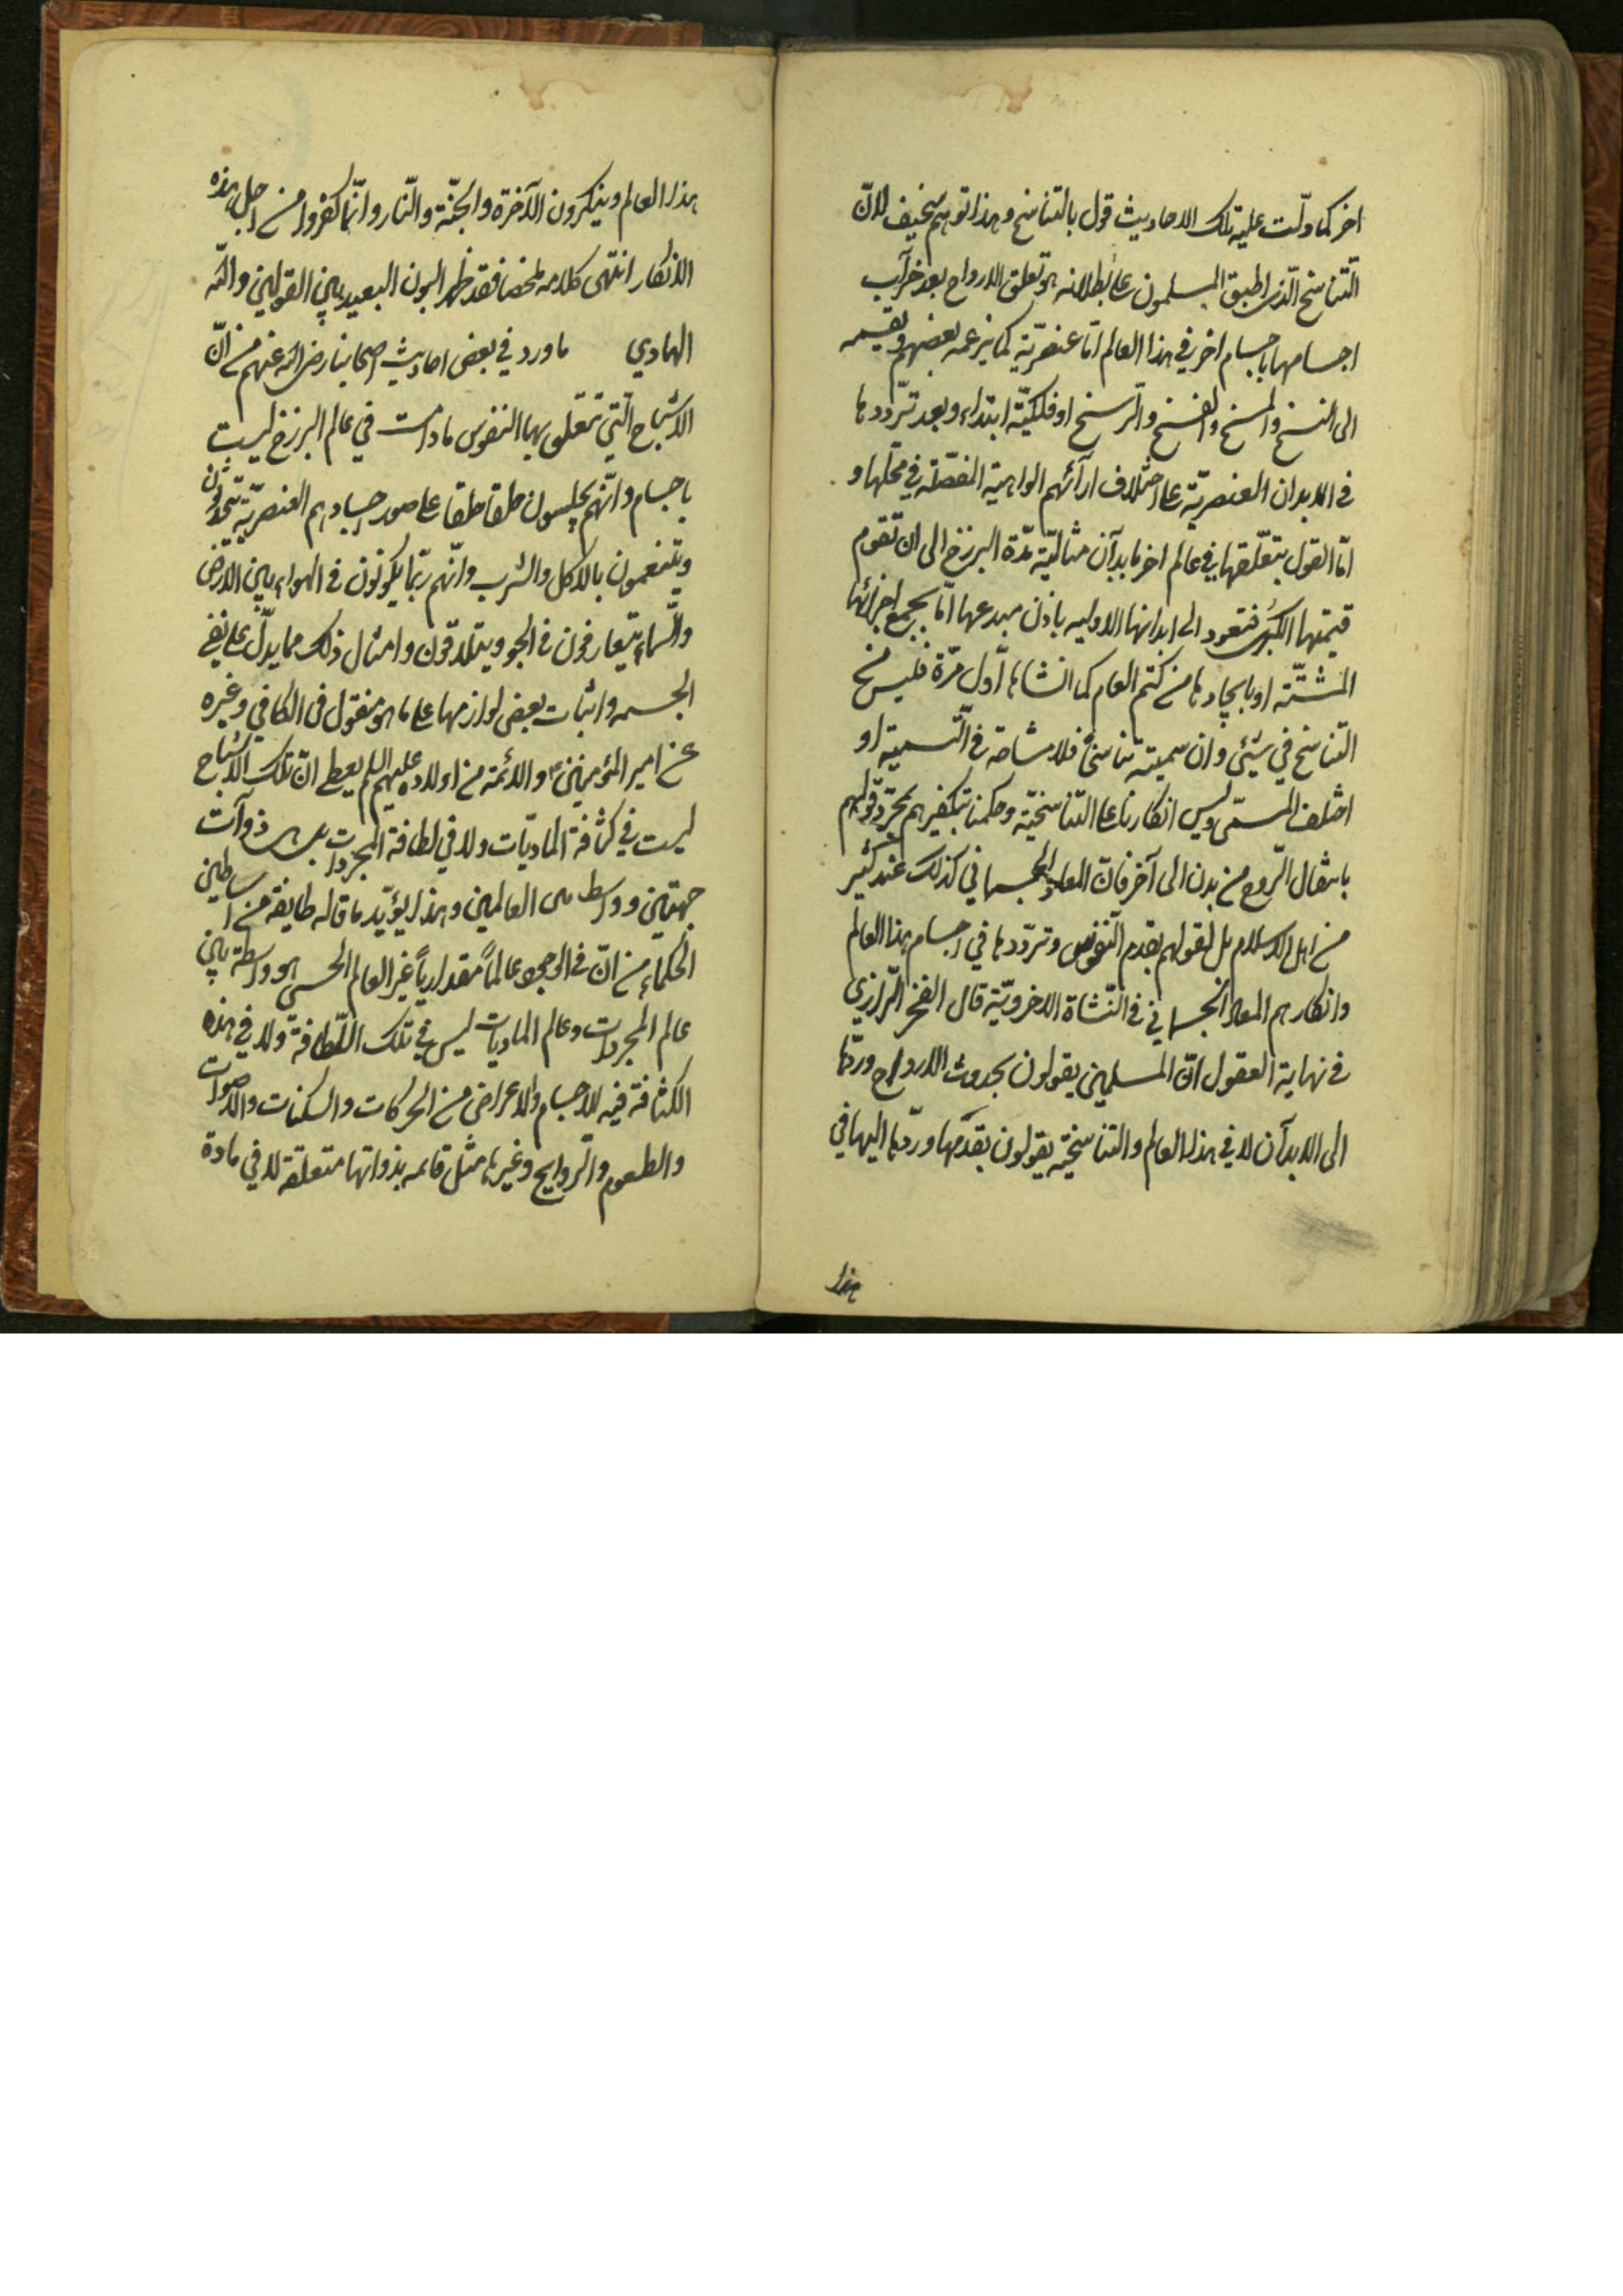 اخر كما دلّت عليه تلك الاحاديث قول بالتناسخ وهذا توهم سخيف لانّ
التّناسخ الّذى اطبق المسلمون على بطلانه هو تعلق الارواح بعد خراب
اجسامها باجسام اخر في هذا العالم امّا عنصريّة كما يزعمه بعضهم ويقسمه
الى النسخ والمسخ والفسخ والرّسخ او فلكيّة ابتداء وبعد تردّدها
في الابدان العنصريّة على اختلاف ارآئهم الواهية المفصّلة في محلها و
امّا القول بتعلّقها في عالم اخر بابدان مثاليّة مدّة البرزخ الى ان تقوم
قيمتها الكبرى فتعود الى ابدانها الاوليه باذن مبدعها امّا بجمع اجزائها
المشتّته او بايجادها من كتم العدم كما انشاها اوّل مرّة فليس من
التناسخ في شيئ وان سميته تناسخاً فلا مشاحة في التّسمية او
اختلف المسمّى وليس انكارنا على التناسخيّة وحكمنا بتكفيرهم بمجرّد قولهم
بانتقال الرّوح من بدن الى آخر فانّ المعاد الجسماني كذلك عند كثير
من اهل الاسلام بل لقولهم بقدم النّفوس وتردّدها في اجسام هذا العالم
وانكارهم المعاد الجسماني في النّشاة الاخرويّة قال الفخر الرّازي
في نهاية العقول انّ المسلمين يقولون بحدوث الارواح وردّها
الى الابدان لا في هذا العالم والتناسخيّه يقولون بقدمها وردّها اليها في
هذا
هذا العالم وينكرون الآخرة والجنّة والنّار وانّما كفروا من اجل هذه
الانكار انتهى كلامه ملخصا فقد ظهر البون البعيد بين القولين واللّه
الهادي ما ورد في بعض احاديث اصحابنا رضى الله عنهم من انّ
الاشباح الّتي تتعلق بها النفوس مادامت في عالم البرزخ ليست
باجسام وانّهم يجلسون حلقا حلقا على صور اجسادهم العنصريّة يتحدّثون
ويتنعمون بالاكل والشرب وانّهم ربّما يكونون في الهواء بين الارض
والسّماء يتعارفون في الجو ويتلاقون وامثال ذلك مما يدلّ على نفي
الجسمه واثبات بعض لوازمها على ما هو منقول في الكافي وغيره
عن امير المؤمنين ع والائمة من اولاده عليهم السلم يعطى انّ تلك الاشباح
ليست في كثافة الماديّات ولا في لطافة المجردات بل هى ذوات
جهتين وواسطه بين العالمين وهذا يؤيّد ما قاله طايفة من اساطين
الحكماء من انّ في الوجود عالماً مقدارياً غير العالم الحسى هو واسطة بين
عالم المجردات وعالم الماديات ليس في تلك اللّطافة ولا في هذه
الكثافة فيه للاجسام والاعراض من الحركات والسكنات والاصوات
والطعوم والرّوايح وغيرها مثل قائمه بذواتها متعلقة لا في مادة